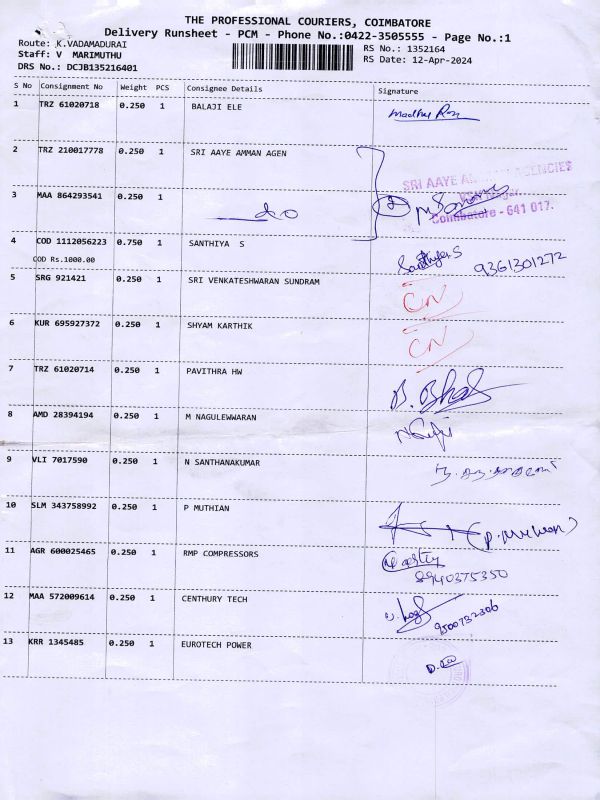 THE PROFESSIONAL COURIERS, COIMBATORE
Delivery Runsheet - PCM - Phone No.:0422-3505555 - Page No.:1
Route: K.VADAMADURAI
Staff: V MARIMUTHU
DRS No.: DCJB135216401
RS No.: 1352164
RS Date: 12-Apr-2024
S No Consignment No Weight PCS Consignee Details Signature
1 TRZ 61020718 0.250 1 BALAJI ELE
2 TRZ 210017778 0.250 1 SRI AAYE AMMAN AGEN
SRI AAYE AGENCIES
3 MAA 864293541 0.250 1 do 2
Coimbatore - 641 017.
4 COD 1112056223 0.750 1 SANTHIYA S Santhiya S 9361301272
COD Rs.1000.00
5 SRG 921421 0.250 1 SRI VENKATESHWARAN SUNDRAM CN
6 KUR 695927372 0.250 1 SHYAM KARTHIK CN
7 TRZ 61020714 0.250 1 PAVITHRA HW
8 AMD 28394194 0.250 1 M NAGULEWWARAN
9 VLI 7017590 0.250 1 N SANTHANAKUMAR
10 SLM 343758992 0.250 1 P MUTHIAN
11 AGR 600025465 0.250 1 RMP COMPRESSORS 8940375350
12 MAA 572009614 0.250 1 CENTHURY TECH
13 KRR 1345485 0.250 1 EUROTECH POWER